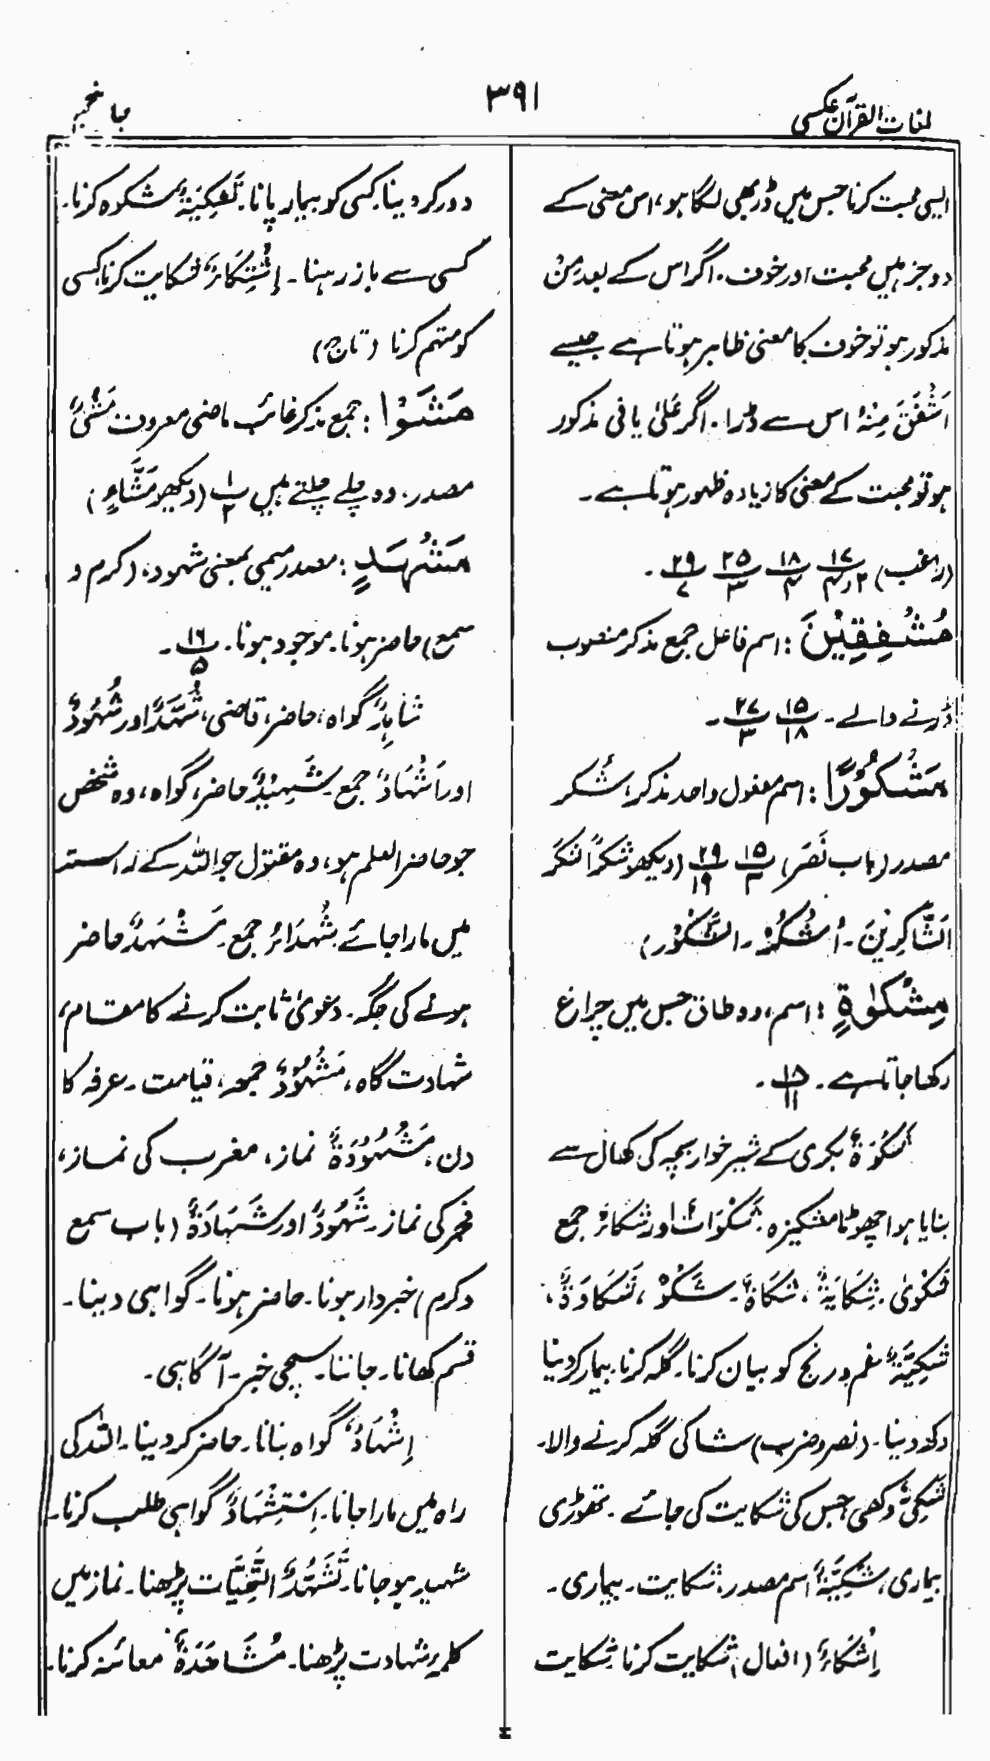 لغات القرآن عکسی
۳۹۱
جلد پنجم
ایسی محبت کرنا جس میں ڈر بھی لگا ہو، اس معنی کے
دو جز ہیں محبت اور خوف۔ اگر اس کے بعد مِنْ
مذکور ہو تو خوف کا معنی ظاہر ہوتا ہے جیسے
اَشْفَقَ مِنْہُ اس سے ڈرا۔ اگر عَلیٰ یا فی مذکور
ہو تو محبت کے معنی کا زیادہ ظہور ہوتا ہے۔
(راغب) ۱۷/۲، ۴ ۱۸/۴ ۲۵/۳ ۲۹/۷ ۔
مُشْفِقِیْنَ : اسم فاعل جمع مذکر منصوب
ڈرنے والے۔ ۱۵/۱۸ ۲۷/۳ ۔
مَشْکُوْرًا : اسم مفعول واحد مذکر، شکر
مصدر (باب نَصَرَ) ۱۵/۳ ۲۹/۱۹ (دیکھو شَکَرَ اَشْکُرُ
اَلشَّاکِرِیْنَ ۔ اُشْکُرْ ۔ الشَّکُوْر)
مِشْکٰوۃٍ : اسم، وہ طاق جس میں چراغ
رکھا جاتا ہے۔ ۱۸/۱۱ ۔
شَکْوَۃٌ بکری کے شیر خوار بچہ کی کھال سے
بنایا ہوا چھوٹا مشکیزہ شَکَوَاتٌ اور شِکَاءٌ جمع
شَکْویٰ، شِکَایَۃٌ، شَکَاۃٌ ۔ شَکْوٌ، شَکَاوَۃٌ،
شَکِیَّۃٌ غم و رنج کو بیان کرنا۔ گلہ کرنا۔ بیمار کر دینا
دکھ دینا۔ (نصر و ضرب) شاکی گلہ کرنے والا۔
شَکِیٌّ دکھی جس کی شکایت کی جائے۔ تھوڑی
بیماری، شَکِیَّۃٌ اسم مصدر، شکایت۔ بیماری۔
اِشْکَاءٌ (افعال) شکایت کرنا شکایت
دور کر دینا۔ کسی کو بیمار پانا۔ تَشْکِیَۃٌ شکوہ کرنا۔
کسی سے باز رہنا۔ اِشْتِکَاءٌ شکایت کرنا، کسی
کو متہم کرنا (تاج)
مَشَوْا : جمع مذکر غائب ماضی معروف مَشْیٌ
مصدر، وہ چلے چلتے ہیں ۱/۲ (دیکھو مَشَّاءٍ)
مَشْہَدٍ : مصدر میمی بمعنی شہود، (کرم و
سمع) حاضر ہونا۔ موجود ہونا۔ ۱۶/۵ ۔
شاہِدٌ گواہ، حاضر، قاضی، شُہَّدٌ اور شُہُوْدٌ
اور اَشْہَادٌ جمع شَہِیْدٌ حاضر، گواہ، وہ شخص
جو حاضر العلم ہو، وہ مقتول جو اللہ کے راستہ
میں مارا جائے شُہَدَاءُ جمع۔ مَشْہَدٌ حاضر
ہونے کی جگہ۔ دعویٰ ثابت کرنے کا مقام،
شہادت گاہ، مَشْہُوْدٌ جمعہ، قیامت۔ عرفہ کا
دن، مَشْہُوْدَۃٌ نماز، مغرب کی نماز،
فجر کی نماز۔ شُہُوْدٌ اور شَہَادَۃٌ (باب سمع
و کرم) خبردار ہونا۔ حاضر ہونا۔ گواہی دینا۔
قسم کھانا۔ جاننا۔ سچی خبر۔ آگاہی۔
اِشْہَادٌ گواہ بنانا۔ حاضر کر دینا۔ اللہ کی
راہ میں مارا جانا۔ اِسْتِشْہَادٌ گواہی طلب کرنا۔
شہید ہو جانا۔ تَشَہُّدٌ اَلتَّحِیَّات پڑھنا۔ نماز میں
کلمہ شہادت پڑھنا۔ مُشَاھَدَۃٌ معائنہ کرنا۔